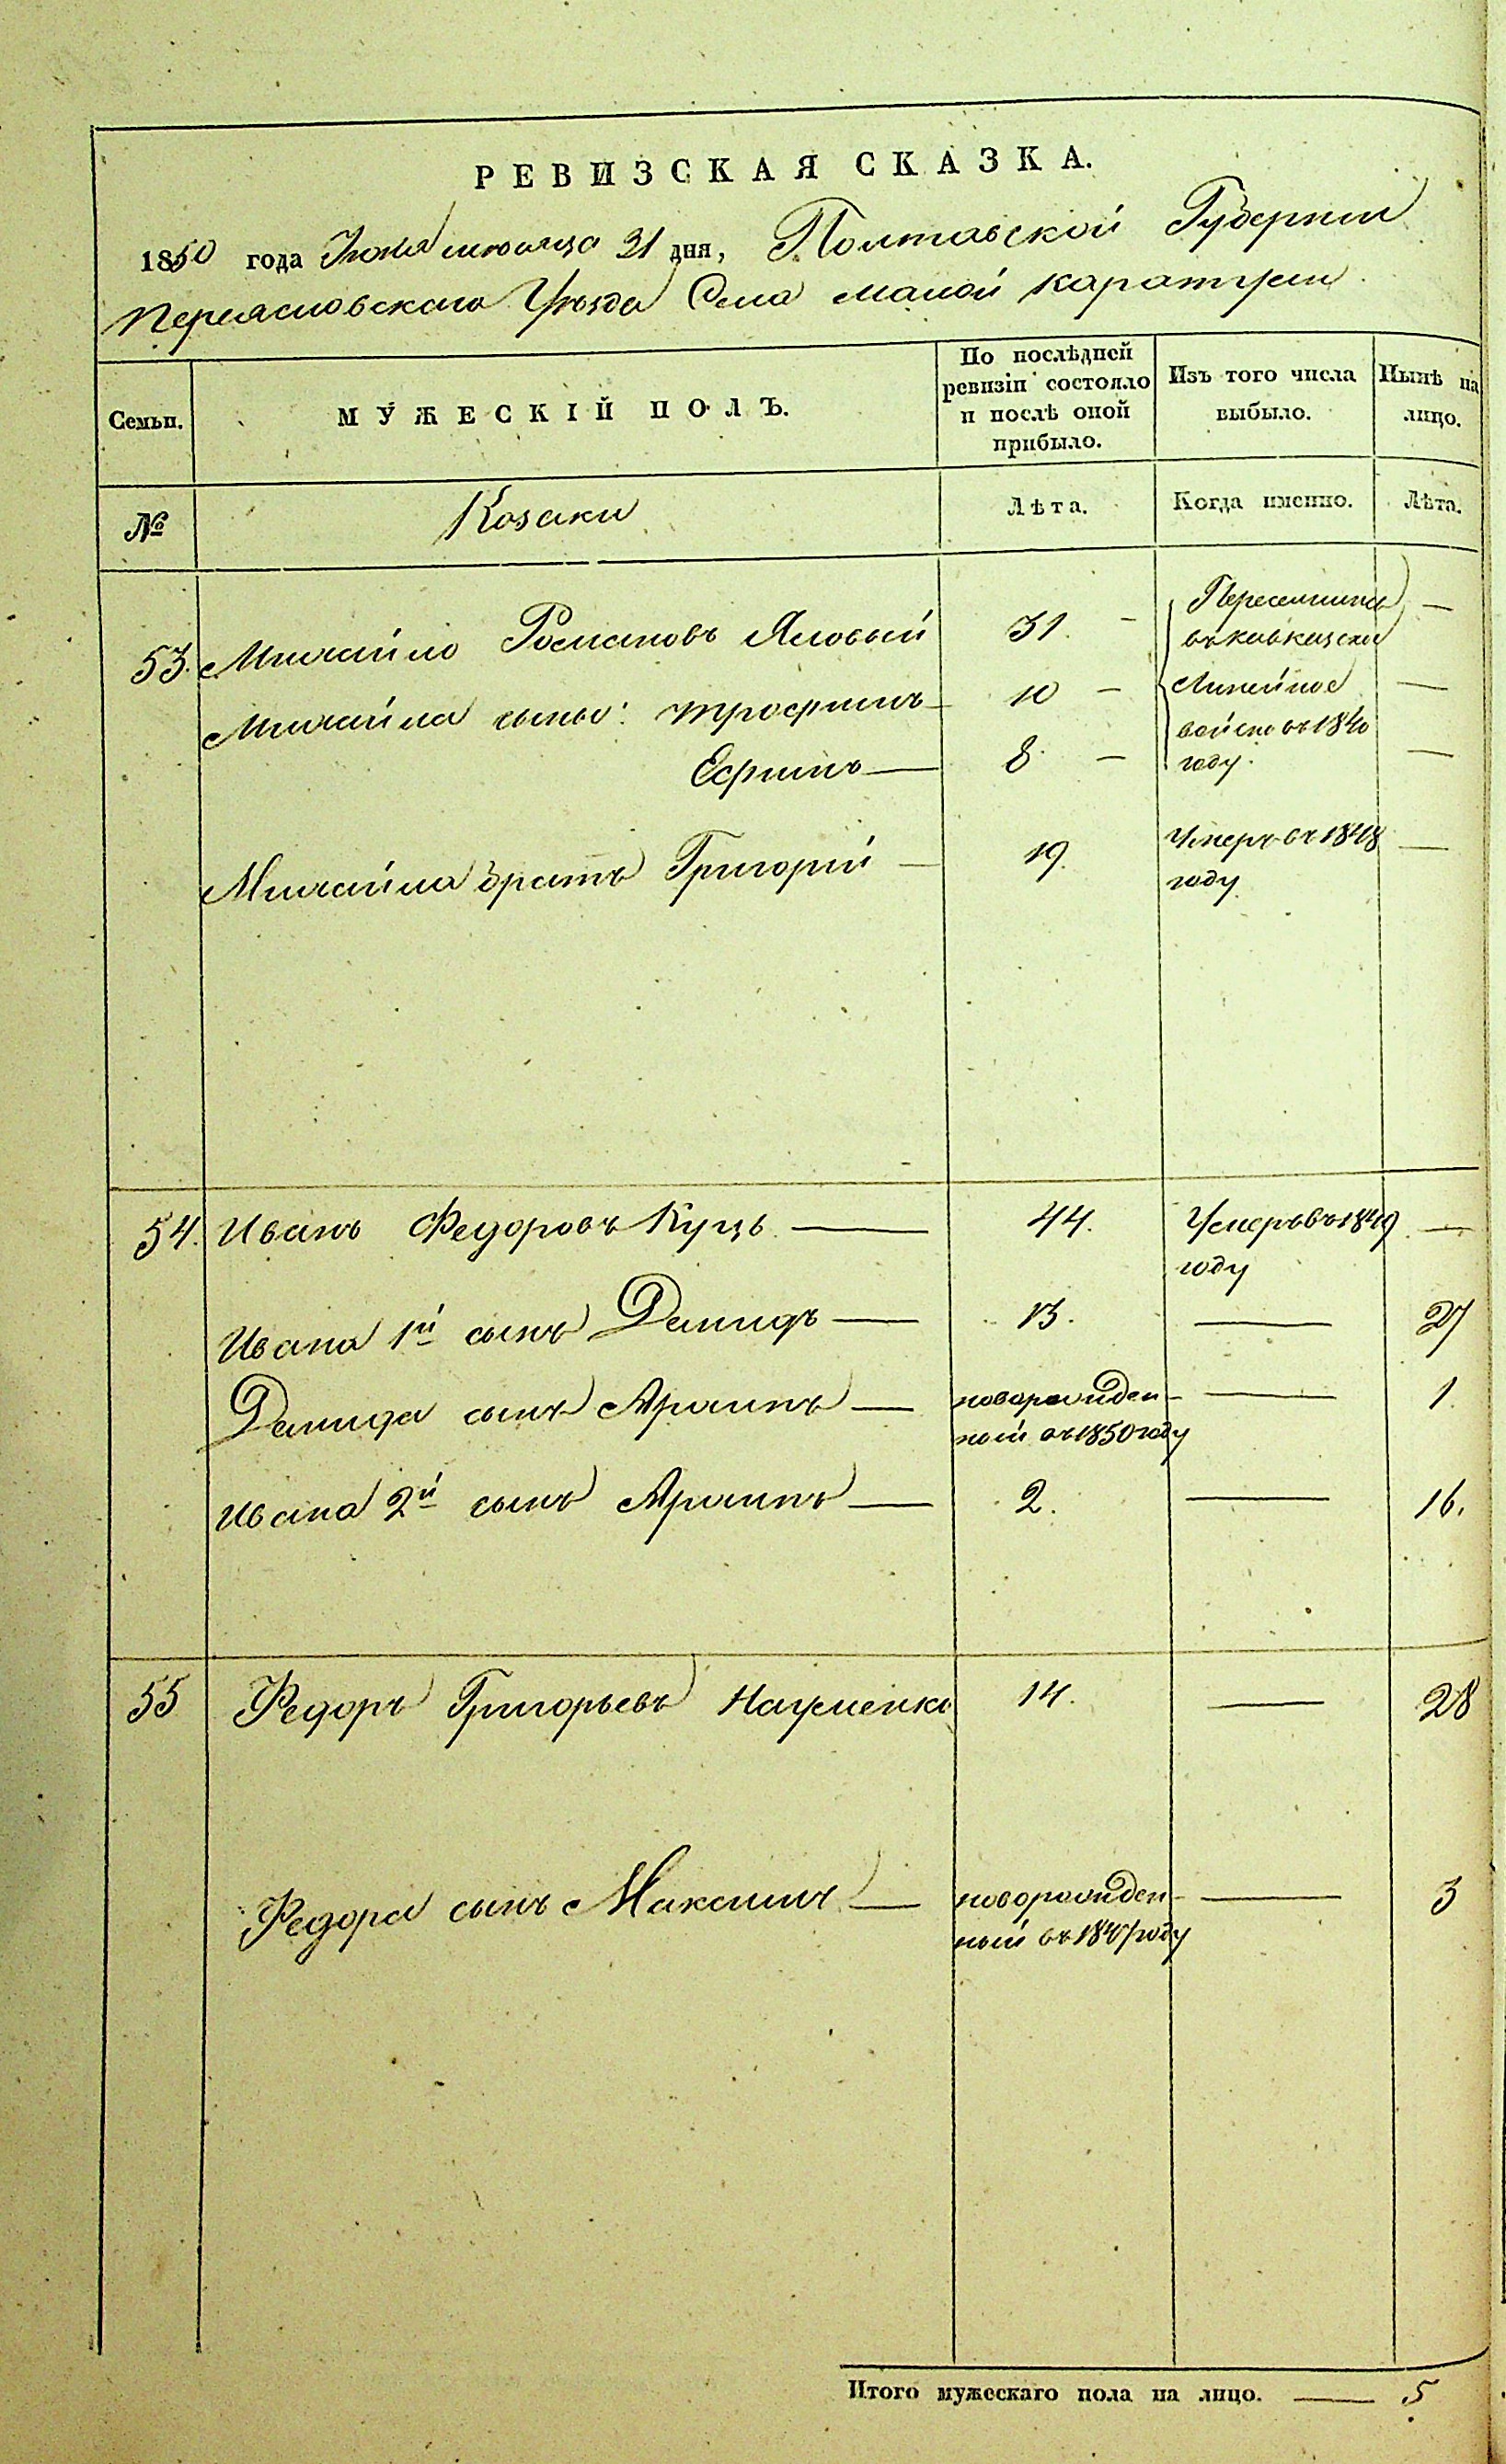 РЕВИЗСКАЯ СКАЗКА.
1850 года Июля месяца 31 дня, Полтавской Губерніи
Переясловскаго Уѣзда Села малой каратули
Семьи. МУЖЕСКІЙ ПОЛЪ. По послѣдней ревизіи состояло и послѣ оной прибыло. Изъ того числа выбыло. Нынѣ на лицо.
№ Козаки Лѣта. Когда именно. Лѣта.
53. Михайло Романовъ Яловый 31. – Переселились —
въ кавказское
Михайла сыны: трофимъ 10 – Линейное —
войско въ 1840
Ефимъ — 8. – году. —
Михайла братъ Григорій — 19. Умеръ въ 1848 —
году.
54. Иванъ Федоровъ Куць. — 44. Умеръ въ 1849 —
году
Ивана 1й сынъ Демидъ — 13. — 27
Демида сынъ Архипъ — новорожден- — 1.
ный въ 1850 году
Ивана 2й сынъ Архипъ — 2. — 16.
55 Федоръ Григорьевъ Науменко 14. — 28
Федора сынъ Максимъ — новорожден- — 3
ный въ 1847 году
Итого мужескаго пола на лицо. — 5